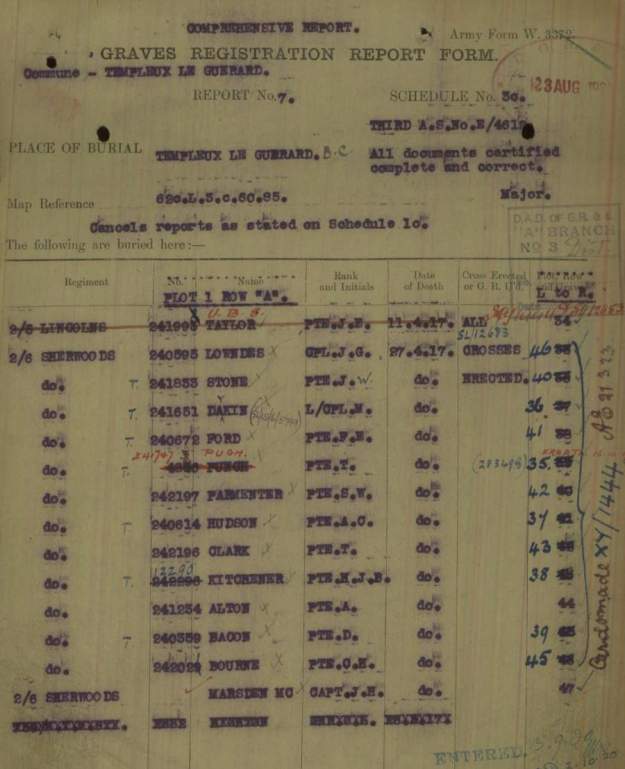 COMPREHENSIVE REPORT.
Army Form W. 3372.
GRAVES REGISTRATION REPORT FORM.
Commune - TEMPLEUX LE GUERRARD.
23 AUG
REPORT No. 7.
SCHEDULE No. 3c.
THIRD A.S.No.E/4612
PLACE OF BURIAL
TEMPLEUX LE GUERRARD. B.C
All documents certified
complete and correct.
Map Reference
62c.L.3.c.60.85.
Major.
Cancels reports as stated on Schedule 1c.
D.A.D. OF G.R. & E.
"A" BRANCH
No 3
The following are buried here:—
Regiment No. Name Rank and Initials Date of Death Cross Erected or G. R. U'd.
PLOT 1 ROW "A". L to R.
U.B.S.
2/5 LINCOLNS 241993 TAYLOR PTE.J.E. 11.4.17. ALL 34
SL/12683
2/6 SHERWOODS 240595 LOWNDES CPL.J.G. 27.4.17. CROSSES 46
do. T. 241833 STONE PTE.J.W. do. ERECTED. 40
do. T. 241651 DAKIN L/CPL.M. do. 36 37
do. T. 240672 FORD PTE.F.E. do. 41 38
241747 PUGH.
do. T. PUNCH PTE.T. do. 35 39
do. 242197 PARMENTER PTE.S.W. do. 42 40
do. T 240614 HUDSON PTE.A.C. do. 37 41
do. 242196 CLARK PTE.T. do. 43
12290
do. T. 242296 KITCHENER PTE.H.J.B. do. 38
do. 241254 ALTON PTE.A. do. 44
do. T 240359 BACON PTE.D. do. 39
do. 242029 BOURNE PTE.C.H. do. 45
2/6 SHERWOODS MARSDEN MC CAPT.J.H. do. 47
Cards made XY/1444 AB 21 3 23
ENTERED.